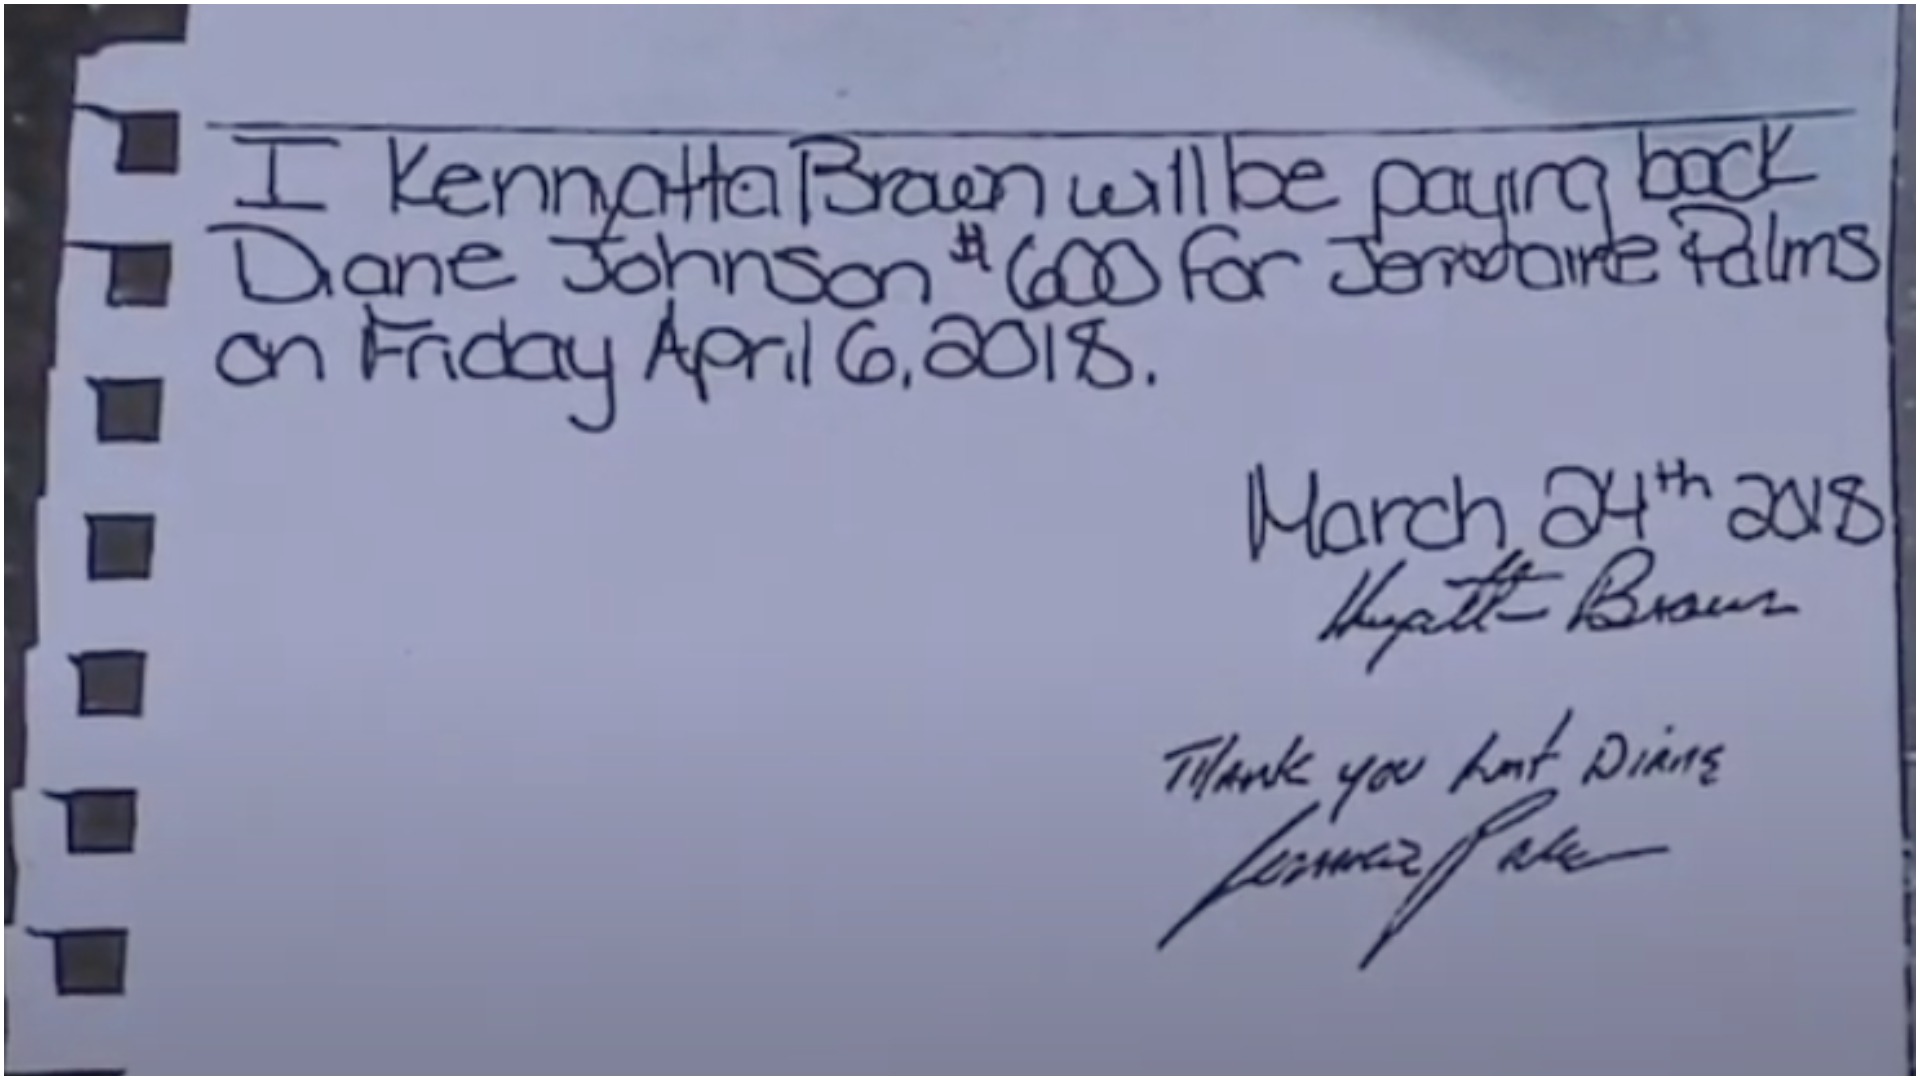 I Kennyatta Brown will be paying back
Diane Johnson $600 for Jermaine Palms
on Friday April 6, 2018.
March 24th 2018
Brown
Thank you Diane